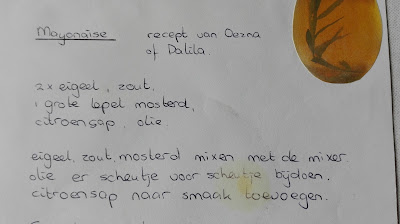 Mayonaise recept van Oezna
of Dalila.
2x eigeel, zout,
1 grote lepel mosterd,
citroensap, olie.
eigeel, zout, mosterd mixen met de mixer.
olie er scheutje voor scheutje bijdoen.
citroensap naar smaak toevoegen.